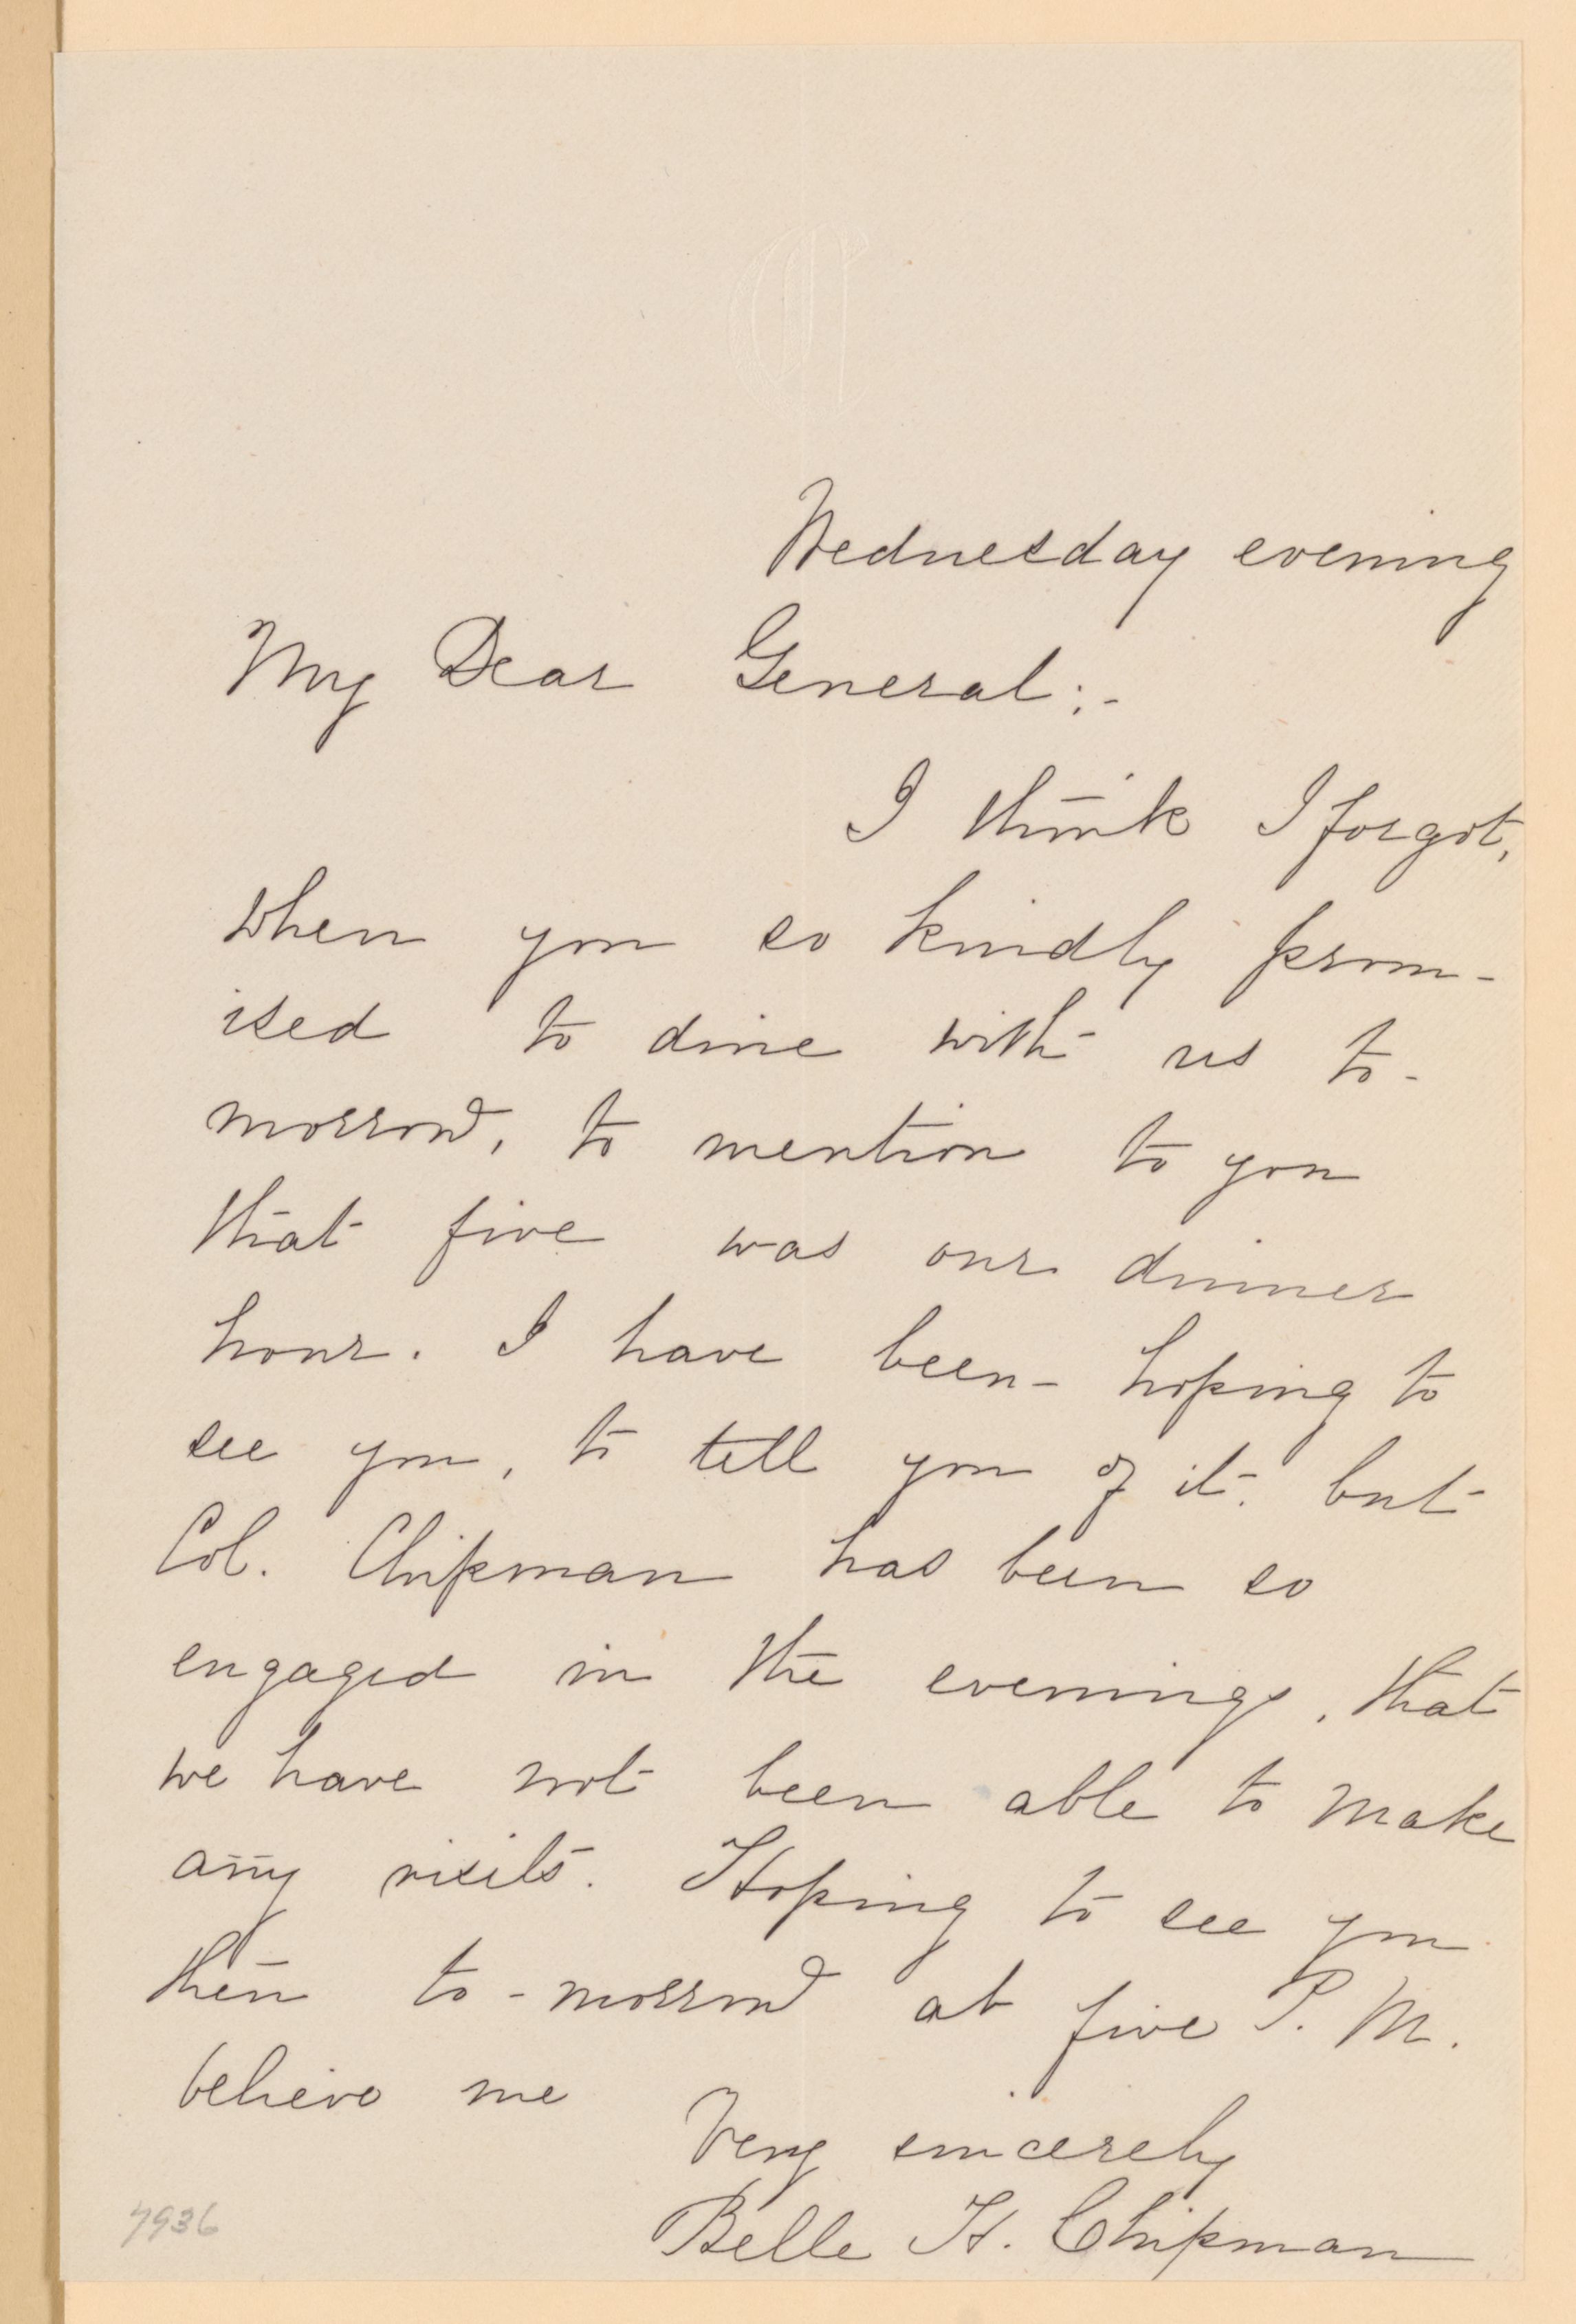 Wednesday evening
My Dear General:-
I think I forgot,
when you so kindly prom-
ised to dine with us to-
morrow, to mention to you
that five was our dinner
hour. I have been- hoping to
see you, to tell you of it. but
Col. Chipman has been so
engaged in the evenings, that
we have not been able to make
any visits. Hoping to see you
then to-morrow at five P. M.
believe me
Very sincerely
Belle H. Chipman
7936